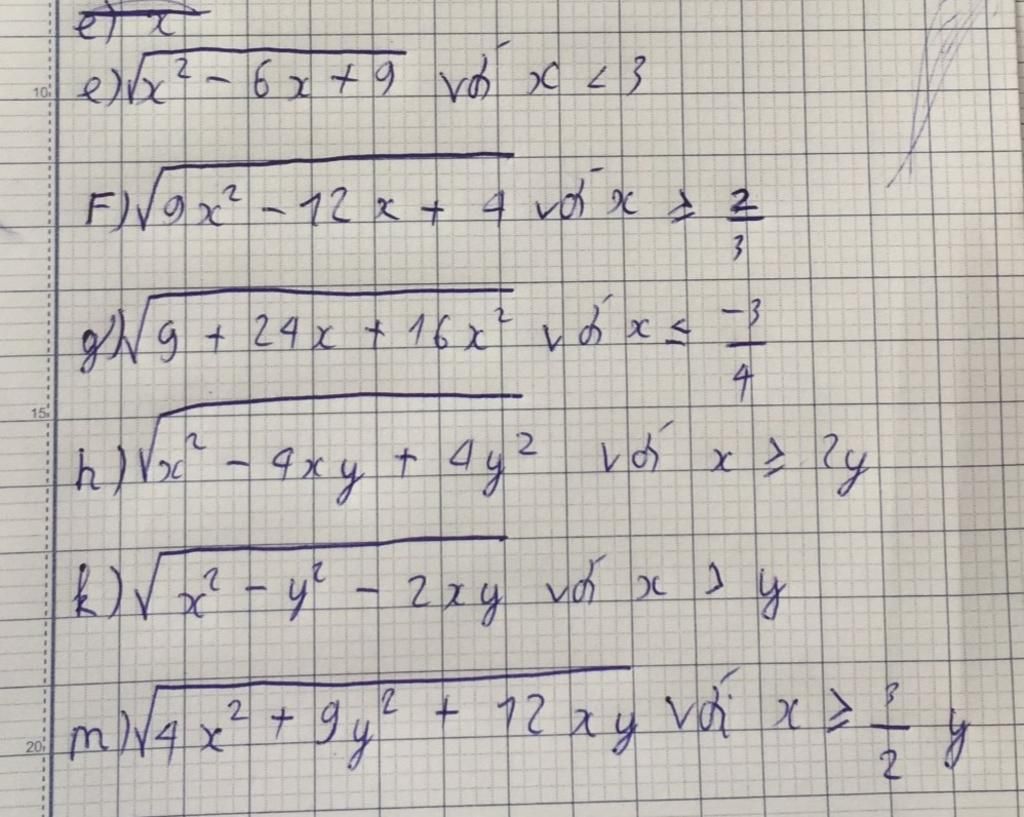 e) x
e) √x² - 6x + 9 với x < 3
F) √9x² - 12x + 4 với x ≥ 2/3
g) √9 + 24x + 16x² với x ≤ -3/4
h) √x² - 4xy + 4y² với x ≥ 2y
k) √x² - y² - 2xy với x > y
m) √4x² + 9y² + 12xy với x ≥ 3/2 y
10
15
20